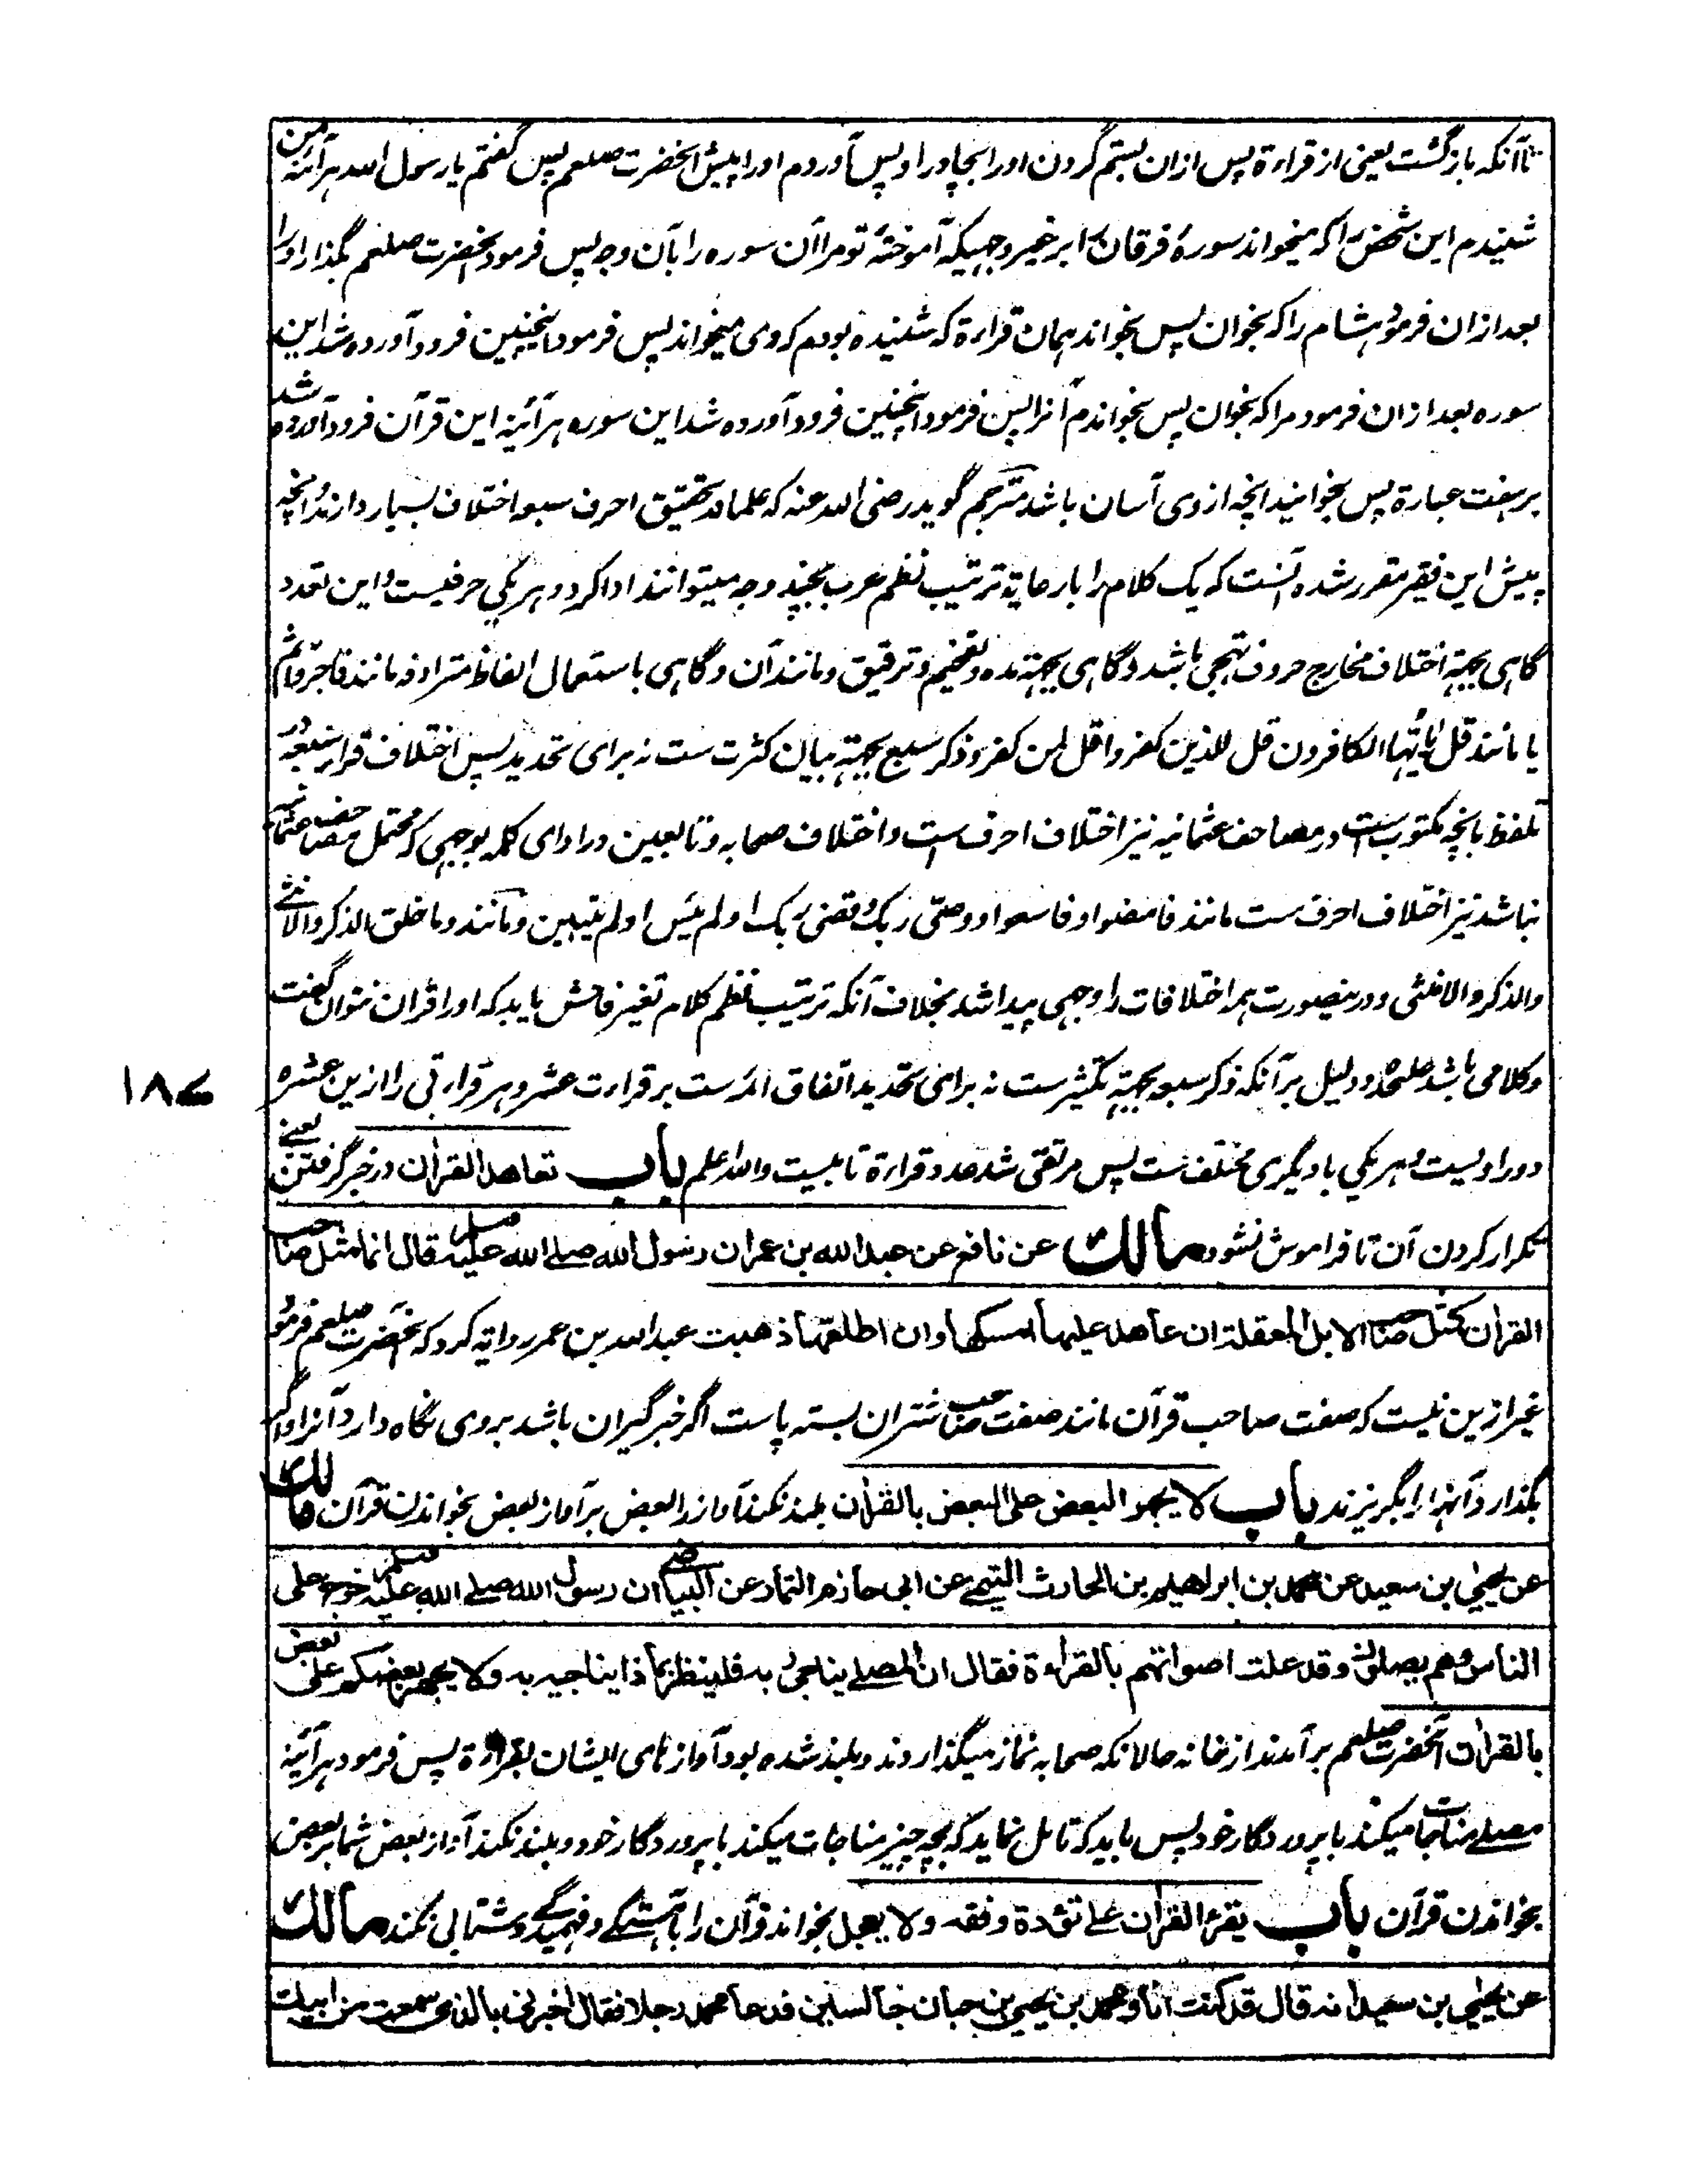 تاآنکه بازگشت یعنی از قراءة پس ازان بستم گردن اورا بجادر او پس آوردم اورا پیش آنحضرت صلعم پس گفتم یا رسول الله هرآئنه من
شنیدم این شخص را که میخواند سورهٔ فرقان را بر غیر وجهیکه آموختهٔ تو مرا آن سوره را بآن وجه پس فرمود آنحضرت صلعم بگذار اورا
بعد ازان فرمود هشام را که بخوان پس بخواند همان قراءة که شنیده بودم که وی میخواند پس فرمود اینچنین فرود آورده شد این
سوره بعد ازان فرمود مرا که بخوان پس بخواندم آنرا پس فرمود اینچنین فرود آورده شد این سوره هرآئینه این قرآن فرود آورده شد
بر هفت عبارة پس بخوانید انچه از وی آسان باشد مترجم گوید رضی الله عنه که علما در تحقیق احرف سبعه اختلاف بسیار دارند و انچه
پیش این فقیر مقرر شده آنست که یک کلام را با رعایة ترتیب نظم عرب بچند وجه میتوانند ادا کرد و هر یکی حرفیست و این تعدد
گاهی بجهة اختلاف مخارج حروف تهجی باشد و گاهی بجهة مده و تفخیم و ترقیق و مانند آن و گاهی باستعمال الفاظ مترادفه مانند فاجر و اثم
یا مانند قل یا ایها الکافرون قل للذین کفروا قل لمن کفر و ذکر سبع بجهة بیان کثرت ست نه برای تحدید پس اختلاف قراء سبعه در
تلفظ بانچه مکتوب ست در مصاحف عثمانیه نیز اختلاف احرف ست و اختلاف صحابه و تابعین در ادای کلمه بوجهی که محتمل مصاحف عثمانیه
نباشد نیز اختلاف احرف ست مانند فامضوا و فاسعوا و وصّی ربک و قضی ربک او لم ییئس او لم یتبین و مانند و ما خلق الذکر والانثی
والذکر والانثی و درینصورت همه اختلافات را وجهی پیدا شد بخلاف آنکه ترتیب نظم کلام تغیر فاحش یابد که اورا قرآن نتوان گفت
و کلامی باشد علحده و دلیل بر آنکه ذکر سبعه بجهة تکثیر ست نه برای تحدید اتفاق ائمه ست بر قراءت عشر و هر قراءتی را ازین عشره
دو راویست و هر یکی با دیگری مختلف ست پس مرتقی شد عدد قراءة تا بیست والله اعلم باب تعاهد القرآن در خبر گرفتن یعنے
تکرار کردن آن تا فراموش نشود مالك عن نافع عن عبدالله بن عمر ان رسول الله صلے الله علیه وسلم قال انما مثل صاحب
القرآن کمثل صاحب الابل المعقلة ان عاهد علیها امسکها وان اطلقها ذهبت عبدالله بن عمر روایة کرد که آنحضرت صلعم فرمود
غیر ازین نیست که صفت صاحب قرآن مانند صفت صاحب شتران بسته پاست اگر خبر گیران باشد بر وی نگاه دارد آنرا و اگر
بگذارد آنها را بگریزند باب لا یجهر البعض علی البعض بالقرآن بلند نکند آواز را بعض بر آواز بعض بخواندن قرآن مالك
عن یحیی بن سعید عن محمد بن ابراهیم بن الحارث التیمے عن ابی حازم التمار عن البیاضے ان رسول الله صلے الله علیه وسلم خرج علی
الناس وهم یصلون وقد علت اصواتهم بالقراءة فقال ان المصلے یناجی ربه فلینظر بما ذا یناجیه به ولا یجهر بعضکم علی بعض
بالقرآن آنحضرت صلعم برآمدند از خانه حالانکه صحابه نماز میگذاردند و بلند شده بود آوازهای ایشان بقراءة پس فرمود هرآئینه
مصلے مناجات میکند با پروردگار خود پس باید که تامل نماید که بچه چیز مناجات میکند با پروردگار خود و بلند نکند آواز بعض شما بر بعض
بخواندن قرآن باب یقرئ القرآن علے تؤدة وفقه ولا یعجل بخواند قرآن را بآهستگے و فهمیدگے و شتابی نکند مالك
عن یحیی بن سعید انه قال قد کنت انا ومحمد بن یحیی بن حبان جالسین فدعا محمد رجلا فقال اخبرنی بالذی سمعت من ابیك
١٨٧